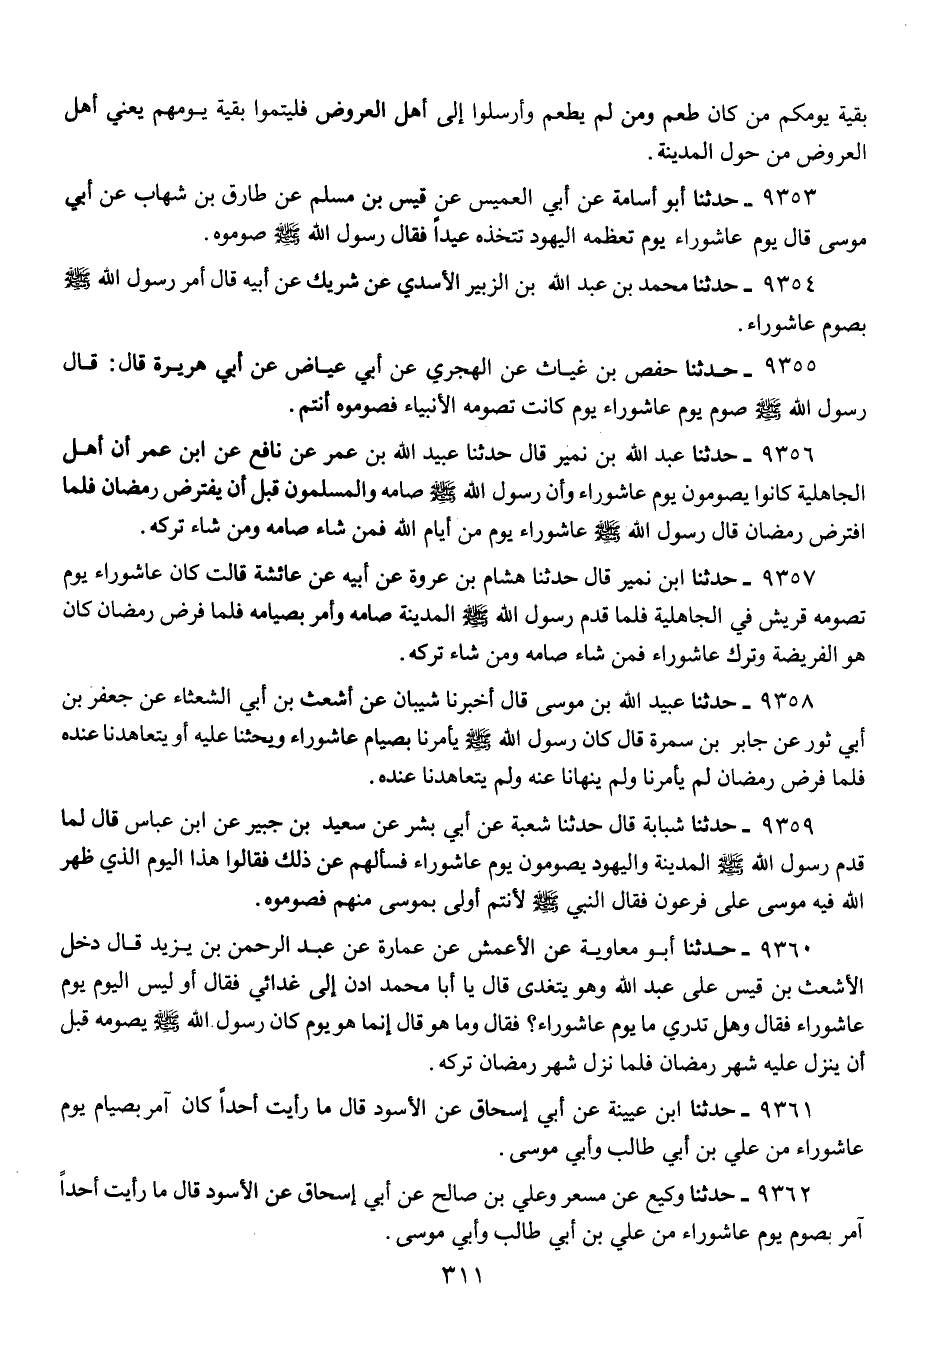 بقية يومكم من كان طعم ومن لم يطعم وأرسلوا إلى أهل العروض فليتموا بقية يـومهم يعني أهل
العروض من حول المدينة .
٩٣٥٣ ـ حدثنا أبو أسامة عن أبي العميس عن قيس بن مسلم عن طارق بن شهاب عن أبي
موسى قال يوم عاشوراء يوم تعظمه اليهود تتخذه عيداً فقال رسول الله ﷺ صوموه .
٩٣٥٤ ـ حدثنا محمد بن عبد الله بن الزبير الأسدي عن شريك عن أبيه قال أمر رسول الله ﷺ
بصوم عاشوراء .
٩٣٥٥ ـ حـدثنا حفص بن غيـاث عن الهجري عن أبي عيـاض عن أبي هريـرة قال : قـال
رسول الله ﷺ صوم يوم عاشوراء يوم كانت تصومه الأنبياء فصوموه أنتم .
٩٣٥٦ ـ حدثنا عبد الله بن نمير قال حدثنا عبيد الله بن عمر عن نافع عن ابن عمر أن أهـل
الجاهلية كانوا يصومون يوم عاشوراء وأن رسول الله ﷺ صامه والمسلمون قبل أن يفترض رمضان فلما
افترض رمضان قال رسول الله ﷺ عاشوراء يوم من أيام الله فمن شاء صامه ومن شاء تركه .
٩٣٥٧ ـ حدثنا ابن نمير قال حدثنا هشام بن عروة عن أبيه عن عائشة قالت كان عاشوراء يوم
تصومه قريش في الجاهلية فلما قدم رسول الله ﷺ المدينة صامه وأمر بصيامه فلما فرض رمضان كان
هو الفريضة وترك عاشوراء فمن شاء صامه ومن شاء تركه .
٩٣٥٨ ـ حدثنا عبيد الله بن موسى قال أخبرنا شيبان عن أشعث بن أبي الشعثاء عن جعفر بن
أبي ثور عن جابر بن سمرة قال كان رسول الله ﷺ يأمرنا بصيام عاشوراء ويحثنا عليه أو يتعاهدنا عنده
فلما فرض رمضان لم يأمرنا ولم ينهانا عنه ولم يتعاهدنا عنده .
٩٣٥٩ ـ حدثنا شبابة قال حدثنا شعبة عن أبي بشر عن سعيد بن جبير عن ابن عباس قال لما
قدم رسول الله ﷺ المدينة واليهود يصومون يوم عاشوراء فسألهم عن ذلك فقالوا هذا اليوم الذي ظهر
الله فيه موسى على فرعون فقال النبي ﷺ لأنتم أولى بموسى منهم فصوموه .
٩٣٦٠ ـ حـدثنا أبـو معاويـة عن الأعمش عن عمارة عن عبـد الرحمن بن يـزيد قـال دخل
الأشعث بن قيس على عبد الله وهو يتغدى قال يا أبا محمد ادن إلى غدائي فقال أو ليس اليوم يوم
عاشوراء فقال وهل تدري ما يوم عاشوراء؟ فقال وما هو قال إنما هو يوم كان رسول الله ﷺ يصومه قبل
أن ينزل عليه شهر رمضان فلما نزل شهر رمضان تركه .
٩٣٦١ ـ حدثنا ابن عيينة عن أبي إسحاق عن الأسود قال ما رأيت أحداً كان آمر بصيام يوم
عاشوراء من علي بن أبي طالب وأبي موسى .
٩٣٦٢ ـ حدثنا وكيع عن مسعر وعلي بن صالح عن أبي إسحاق عن الأسود قال ما رأيت أحداً
آمر بصوم يوم عاشوراء من علي بن أبي طالب وأبي موسى .
٣١١